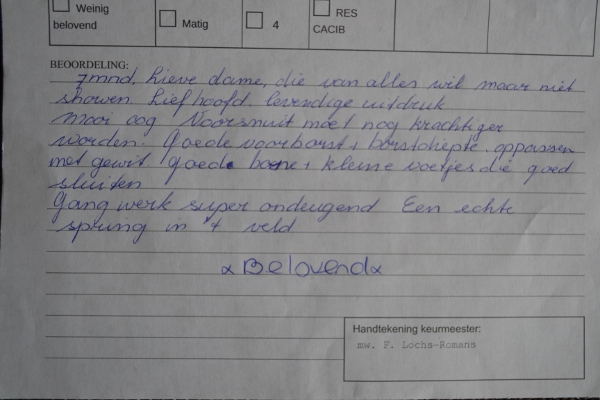 Weinig belovend
Matig
4
RES CACIB
BEOORDELING:
7mnd, Lieve dame, die van alles wil maar niet
showen Lief hoofd, levendige uitdruk
Mooi oog Voorsnuit moet nog krachtiger
worden. Goede voorborst + borstdiepte. oppassen
met gewit goede bone + kleine voetjes die goed
sluiten
Gangwerk super ondeugend Een echte
spring in 't veld
Belovend
Handtekening keurmeester:
mw. F. Lochs-Romans